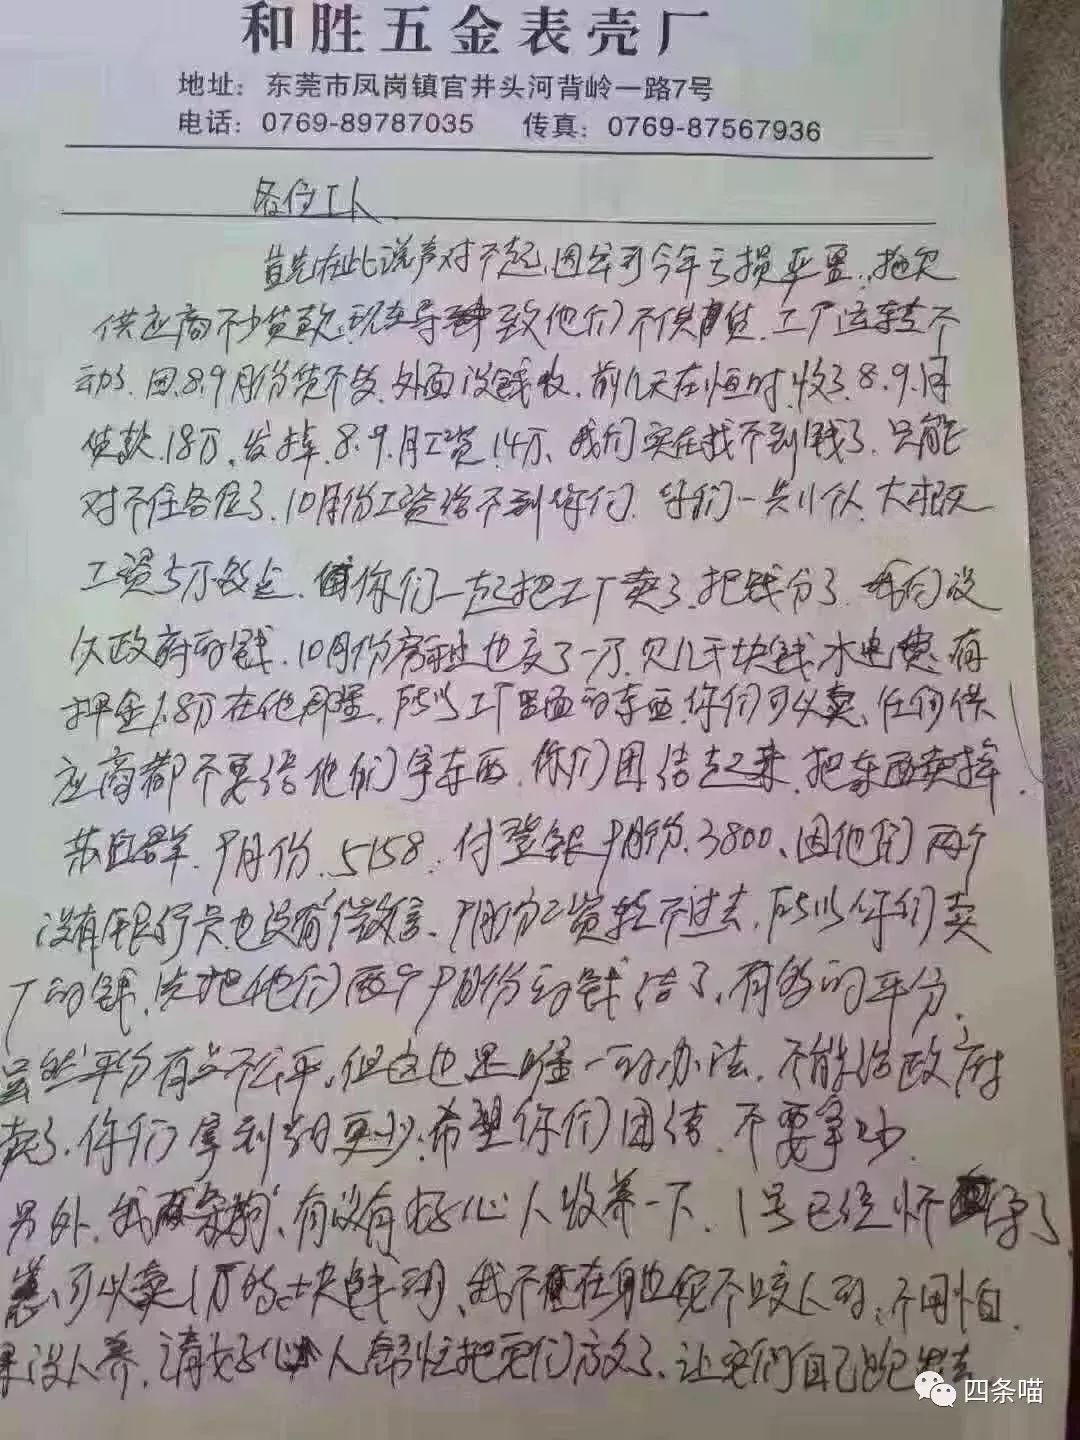 和胜五金表壳厂
地址：东莞市凤岗镇官井头河背岭一路7号
电话：0769-89787035 传真：0769-87567936
各位工人
首先在此说声对不起,因公司今年亏损严重,拖欠
供应商不少货款,现在导致他们不供货.工厂运转不
动了.因8.9月份货不多,外面没钱收.前几天在恒时收了8.9.月
货款.18万,发掉.8.9.月工资.14万、我们实在找不到钱了.只能
对不住各位了.10月份工资给不到你们.你们一共11个人.大概
工资5万多点.你们一起把工厂卖了.把钱分了.我们没
欠政府的钱.10月份房租也交了一万.欠几千块钱水电费.有
押金1.8万在他那里.所以工厂里面的东西.你们可以卖、任何供
应商都不要给他们拿东西.你们团结起来.把东西卖掉.
9月份.5158.付登银9月份.3800、因他们两个
没有银行卡也没有微信、9月份工资转不过去.所以你们卖
厂的钱.先把他们两个9月份的钱结了、有多的平分.
虽然平分有点不公平.但这也是唯一的办法.不能给政府
卖了.你们拿到的更少.希望你们团结.不要争吵.
另外.我两条狗、有没有好心人收养一下.1号已经怀孕了
可以卖1万多块钱的、我不在身边它不咬人的、不用怕.
没人养.请好心人帮忙把它们放了.让它们自己跑出去
四条喵